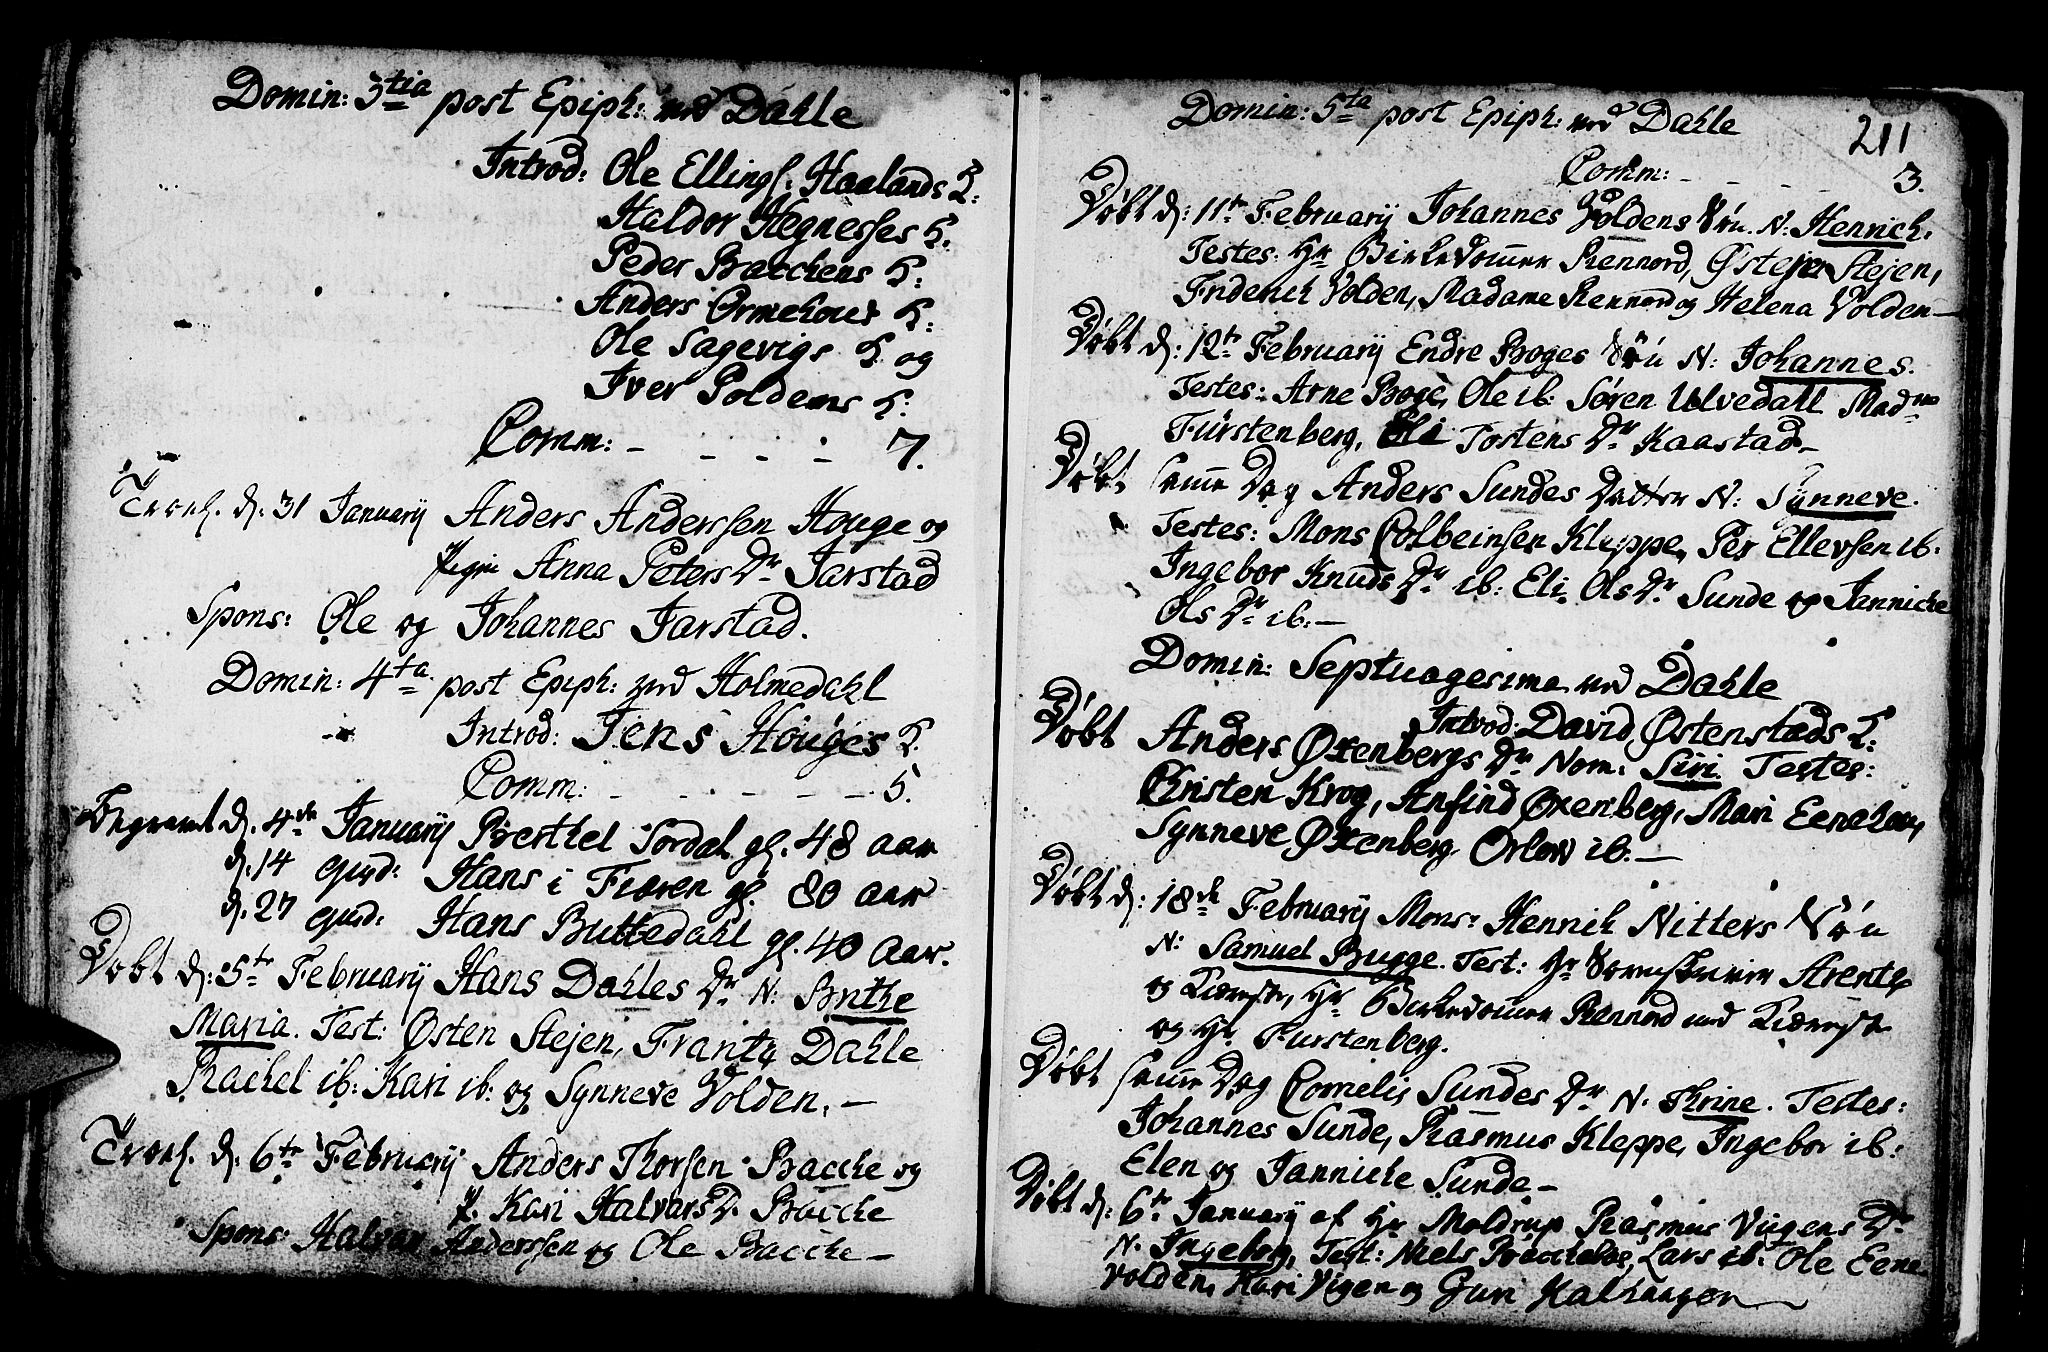 Domin: 3tia post Epiph: ved Dahle
Introd: Ole Ellings. Haalands K:
Haldor Hegnesses K.
Peder Bacchens K:
Anders Ormehous K:
Ole Sagevigs K. og
Iver Poldens K.
Comm: - - - - 7.
d: 31 January Anders Anderssen Houge og
Pigen Anna Peters Dr Jarstad
Spons: Ole og Johannes Jarstad.
Domin: 4ta post Epiph: ved Holmedahl
Introd: Jens Houges K.
Comm: - - - - - 5.
Begravet d. 4de January Berthel Sordal gl. 48 aar
d. 14 ejusd: Hans i Fiæren gl. 80 aar
d. 27 ejusd: Hans Buttedahl gl. 40 Aar.
Døbt d: 5te February Hans Dahles Dr N: Brithe
Maria. Test: Østen Stejen, Frantz Dahle
Rachel ib: Kari ib: og Synneve Volden. -
d. 6te February Anders Thorsen Bacche og
P. Kari Halvars D. Bacche
Spons: Halvar Anderssen og Ole Bacche -
Domin: 5ta post Epiph: ved Dahle
211
Comm: - - - - 3.
Døbt d: 11te February Johannes Joldens Søn N: Henrich.
Testes: Hr Birkedommer Rennord, Østen Stejen,
Friderich Volden, Madame Rennord og Helena Volden -
Døbt d: 12te February Endre Boges Søn N: Johannes.
Testes: Arne Boge, Ole ib: Søren Ulvedahl Madme
Fürstenberg, Eli Tostens Dr Kaastad -
Døbt samme Dag Anders Sundes Datter N: Synneve.
Testes: Mons Colbeinsen Kleppe, Per Ellevsen ib:
Ingebor Knuds Dr ib: Eli Ols Dr Sunde og Jannicke
Ols Dr ib: -
Domin: Septuagesima ved Dahle
Introd: David Østenstads K:
Døbt Anders Oxenbergs Dr Nom: Siri. Testes:
Christen Krog, Anfind Oxenberg, Mari
Synneve Oxenberg Orlow ib. -
Døbt d: 18de February Mons: Henrich Nitters Søn
N: Samuel Bugge. Test: Hr Sorenskriver Arentz
og Kiæreste, Hr Birkedommer Rennord med Kiæreste
og Hr. Furstenberg.
Døbt samme Dag Cornelis Sundes Dr N. Thrine. Testes:
Johannes Sunde, Rasmus Kleppe, Ingebor ib:
Elen og Jannicke Sunde -
Døbt d: 6te January af Hr Moldrup Rasmus Viigens Dr
N. Ingebog, Test: Niels Lars ib: Ole Eene
Volden, Kari Vigen og Guri Kalhaagen